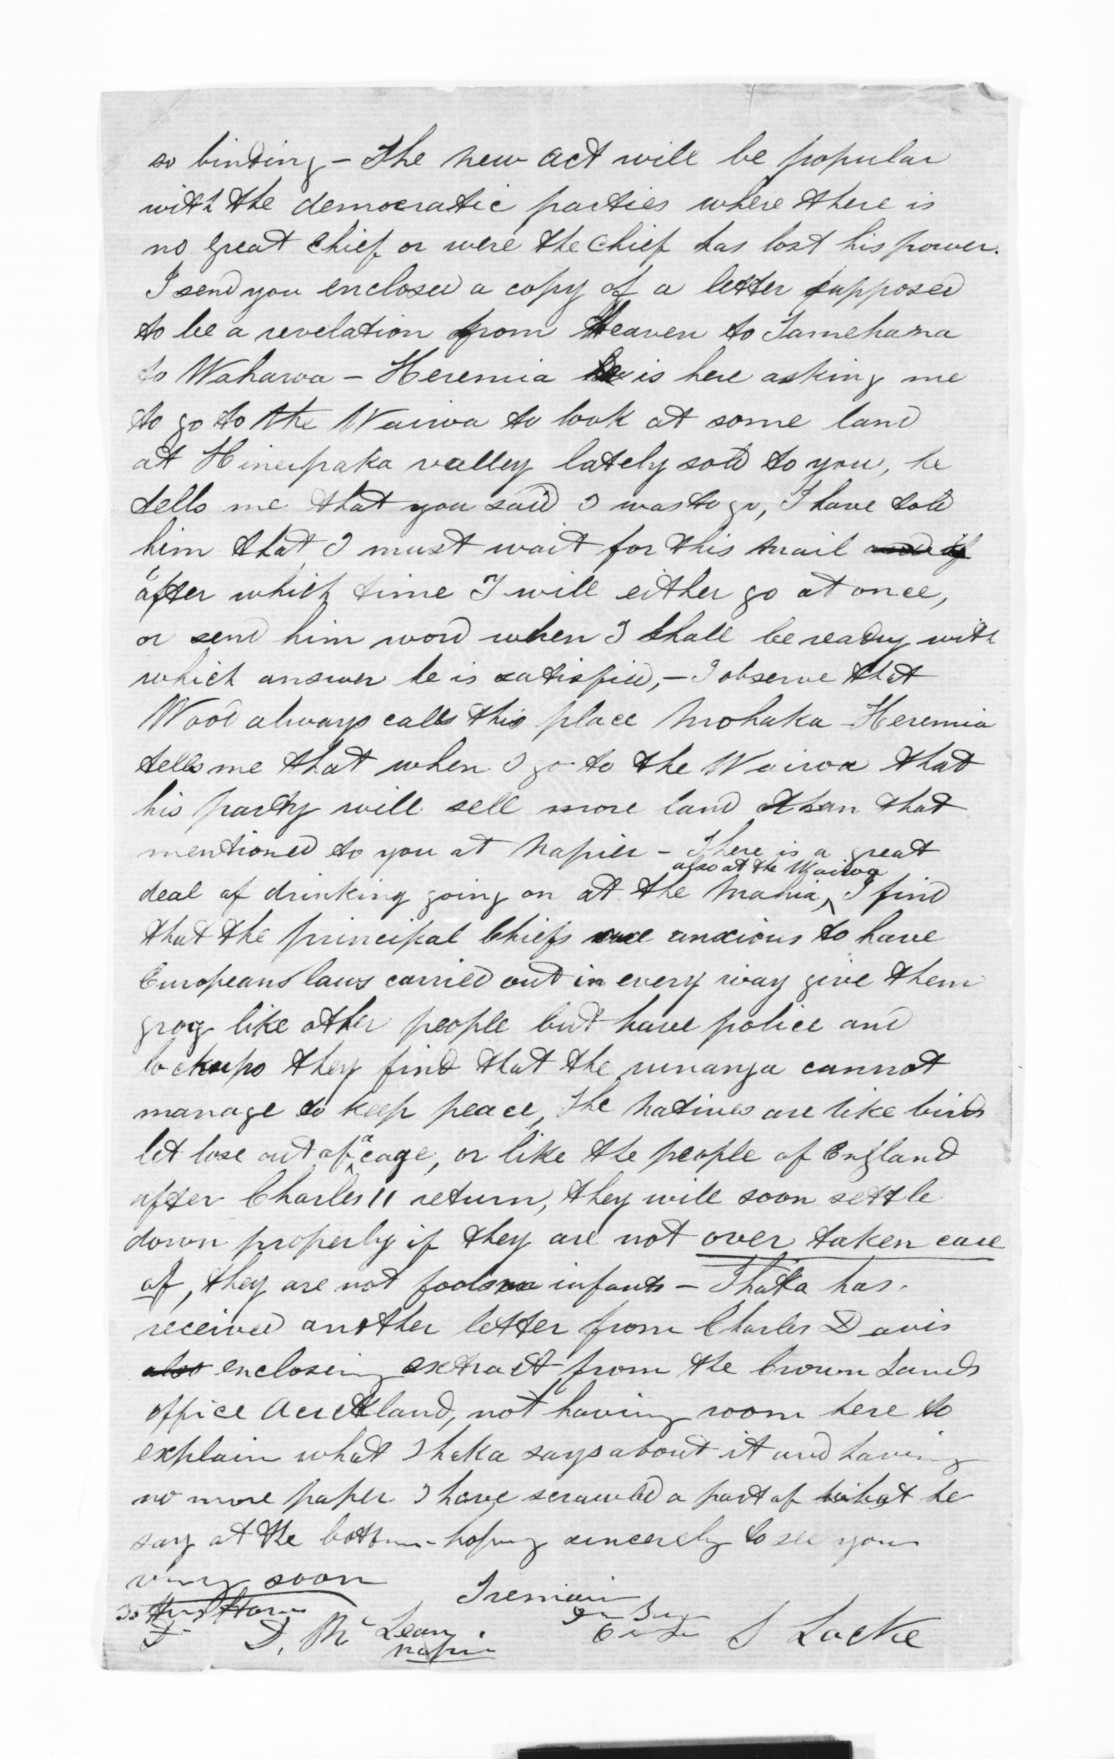 so binding - The new act will be popular
with the democratic parties where there is
no great Chief or were the Chief has lost his power.
I send you enclosed a copy of a letter supposed
to be a revelation from Heaven to Tamehana
to Waharoa - Heremia is here asking me
to go to the Wairoa to look at some land
at Hineipaka valley lately sold to you, he
tells me that you said I was to go, I have told
him that I must wait for this mail and if
after which time I will either go at once,
or send him word when I shall be ready with
which answer he is satisfied, - I observe that
Wood always calls this place Mohaka Heremia
tells me that when I go to the Wairoa that
his party will sell more land than that
mentioned to you at Napier - There is a great
also at the Wairoa
deal of drinking going on at the Mahia, I find
that the principal Chiefs are anxious to have
Europeans laws carried out in every way give them
grog like other people but have police and
lockups they find that the runanga cannot
manage to keep peace, the natives are like birds
let lose out of a cage, or like the people of England
after Charles 11 return, they will soon settle
down properly if they are not over taken care
of, they are not fools or infants - Ihaka has
received another letter from Charles Davis
also enclosing extract from the Crown Lands
office Auckland, not having room here to
explain what Ihaka says about it and having
no more paper I have scrawled a part of what he
say at the bottom - hoping sincerely to see you
very soon
I remain
To His Honor
D. McLean
Napier
S Locke